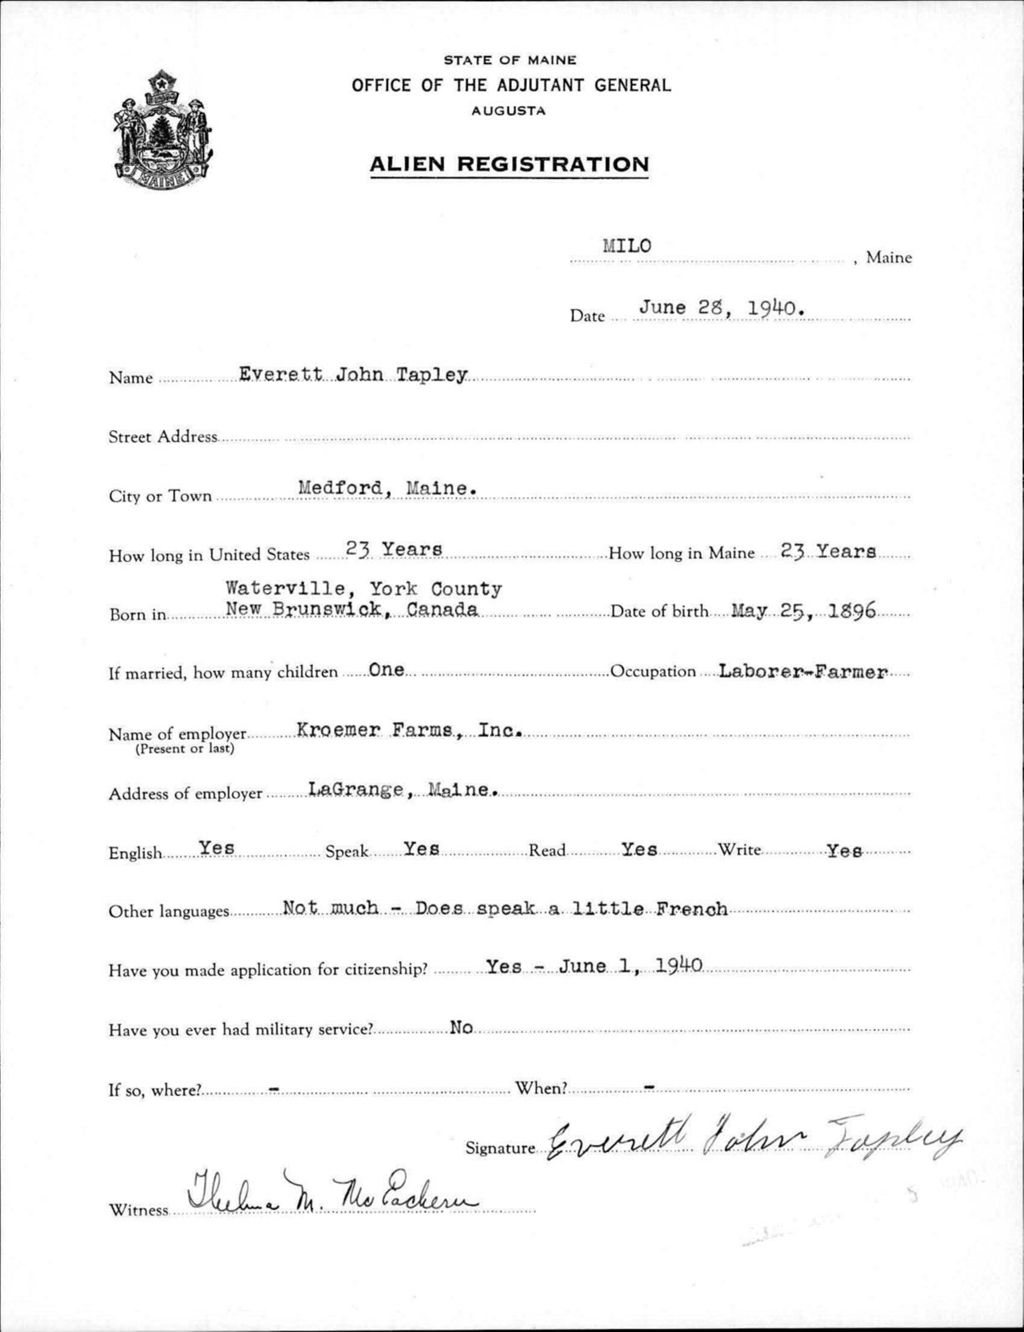 STATE OF MAINE
OFFICE OF THE ADJUTANT GENERAL
AUGUSTA
ALIEN REGISTRATION
MAINE
MILO, Maine
Date June 28, 1940.
Name Everett John Tapley
Street Address
City or Town Medford, Maine.
How long in United States 23 Years How long in Maine 23 Years
Waterville, York County
Born in New Brunswick, Canada Date of birth May 25, 1896
If married, how many children One Occupation Laborer-Farmer
Name of employer Kroemer Farms, Inc.
(Present or last)
Address of employer LaGrange, Maine.
English Yes Speak Yes Read Yes Write Yes
Other languages Not much - Does speak a little French
Have you made application for citizenship? Yes - June 1, 1940
Have you ever had military service? No
If so, where? - When? -
Signature Everett John Tapley
Witness Thelma M. McEachern